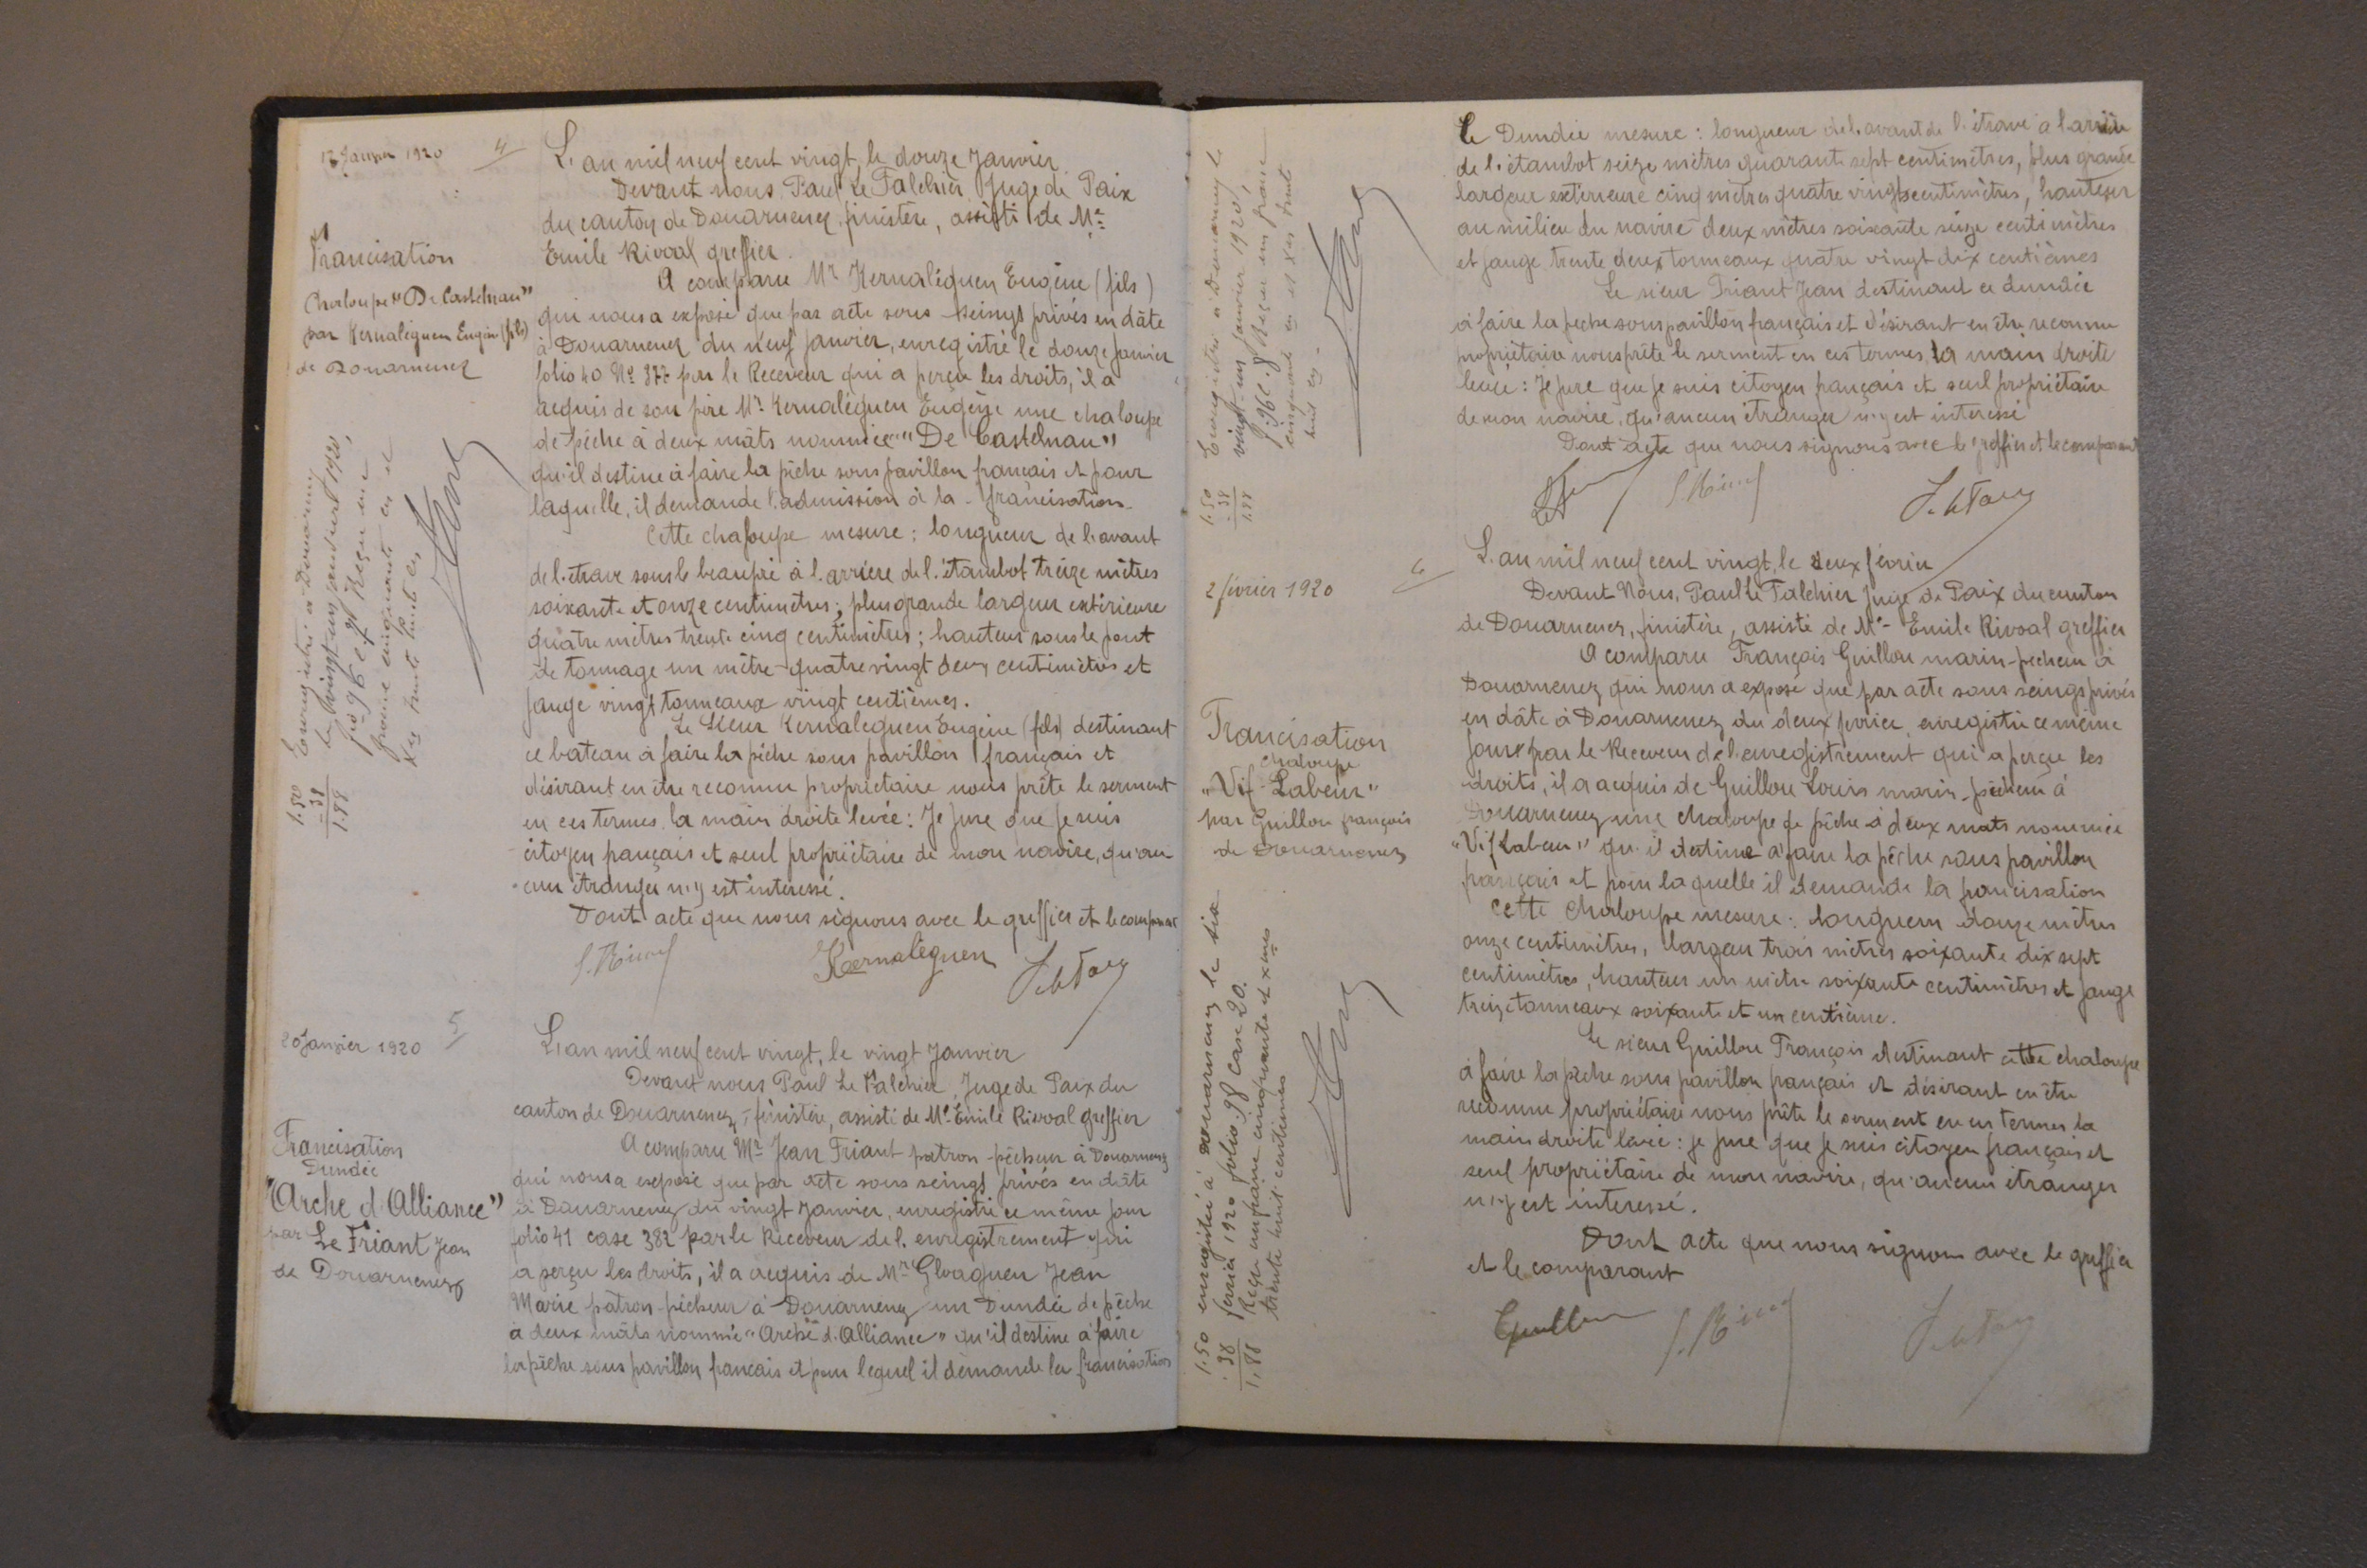 12 Janvier 1920
4
Francisation
Chaloupe "De Castelnau"
par Kernaléguen Eugène (fils)
de Douarnenez
Enregistré à Douarnenez
le vingt-un janvier 1920,
fio 96 c. 7. Reçu un
franc cinquante en pl
Xes trente huit ces
1.50
- 38
1.88
L'an mil neuf cent vingt, le douze Janvier
Devant nous Paul Le Falchier Juge de Paix
du canton de Douarnenez, finistère, assisté de Me
Emile Rivoal greffier.
A comparu Mr Kernaléguen Eugène (fils)
qui nous a exposé que par acte sous-seings privés en dâte
à Douarnenez du neuf janvier, enregistré le douze janvier
folio 40 No 377 par le Receveur qui a perçu les droits, il a
acquis de son père Mr Kernaléguen Eugène une chaloupe
de pêche à deux mâts nommée "De Castelnau"
qu'il destine à faire la pêche sous pavillon français et pour
laquelle, il demande l'admission à la - francisation.
Cette chaloupe mesure : longueur de l'avant
de l'étrave sous le beaupré à l'arrière de l'étambot treize mètres
soixante et onze centimètres ; plus grande largeur extérieure
quatre mètres trente cinq centimètres ; hauteur sous le pont
de tonnage un mètre quatre vingt deux centimètres et
jauge vingt tonneaux vingt centièmes.
Le Sieur Kernaleguen Eugène (fils) destinant
ce bateau à faire la pêche sous pavillon français et
désirant en être reconnu propriétaire nous prête le serment
en ces termes, la main droite levée : Je jure que je suis
citoyen français et seul propriétaire de mon navire, qu'au-
cun étranger n'y est interessé.
Dont acte que nous signons avec le greffier et le comparant
Kernaléguen
20 Janvier 1920
5
Francisation
Dundée
"Arche d'Alliance"
par Le Friant Jean
de Douarnenez
L'an mil neuf cent vingt, le vingt Janvier
Devant nous Paul Le Falchier, Juge de Paix du
canton de Douarnenez, - finistère, assisté de Me Emile Rivoal greffier
A comparu Mr Jean Friant patron-pêcheur à Douarnenez
qui nous a exposé que par acte sous seings privés en dâte
à Douarnenez du vingt Janvier, enregistré ce même jour
folio 41 case 382 par le Receveur de l'enregistrement qui
a perçu les droits, il a acquis de Mr Gloaguen Jean
Marie patron-pêcheur à Douarnenez un Dundée de pêche
à deux mâts nommé "Arche d'Alliance" qu'il destine à faire
la pêche sous pavillon français et pour lequel il demande la francisation
Enregistré à Douarnenez le
vingt-un janvier 1920,
fo 96 c. 8 Reçu un franc
cinquante en et Xes trente
huit ces -
1.50
- 38
1.88
le Dundée mesure : longueur de l'avant de l'étrave à l'arrière
de l'étambot seize mètres quarante sept centimètres, plus grande
largeur extérieure cinq mètres quatre vingts centimètres, hauteur
au milieu du navire deux mètres soixante seize centimètres
et jauge trente deux tonneaux quatre vingt dix centièmes
Le sieur Friant Jean destinant ce dundée
à faire la pêche sous pavillon français et désirant en être reconnu
propriétaire nous prête le serment en ces termes, la main droite
levée : Je jure que je suis citoyen français et seul propriétaire
de mon navire, qu'aucun étranger n'y est interessé
Dont acte que nous signons avec le greffier et le comparant
2 février 1920
6
Francisation
chaloupe
"Vif-Labeur"
par Guillou françois
de Douarnenez
enregistré à Douarnenez le six
fevrier 1920 folio 98 case 20.
Reçu un franc cinquante et xmes
trente huit centimes
1.50
. 38
1,88
L'an mil neuf cent vingt, le deux février
Devant Nous, Paul Le Falchier Juge de Paix du canton
de Douarnenez, finistère, assisté de Me - Emile Rivoal greffier
A comparu François Guillou marin-pêcheur à
Douarnenez qui nous a exposé que par acte sous seings privés
en dâte à Douarnenez du deux février enregistré ce même
jour par le Receveur de l'enregistrement qui a perçu les
droits, il a acquis de Guillou Louis marin-pêcheur à
Douarnenez une chaloupe de pêche à deux mats nommée
"Vif Labeur" qu'il destine à faire la pêche sous pavillon
français et pour laquelle il demande la francisation
Cette chaloupe mesure : longueur douze mètres
onze centimètres, largeur trois mètres soixante dix sept
centimètres, hauteur un mètre soixante centimètres et jauge
treize tonneaux soixante et un centième.
Le sieur Guillou François destinant cette chaloupe
à faire la pêche sous pavillon français et désirant en être
reconnu propriétaire nous prête le serment en ces termes la
main droite levée : je jure que je suis citoyen français et
seul propriétaire de mon navire, qu'aucun étranger
n'y est interessé.
Dont acte que nous signons avec le greffier
et le comparant
Guillou